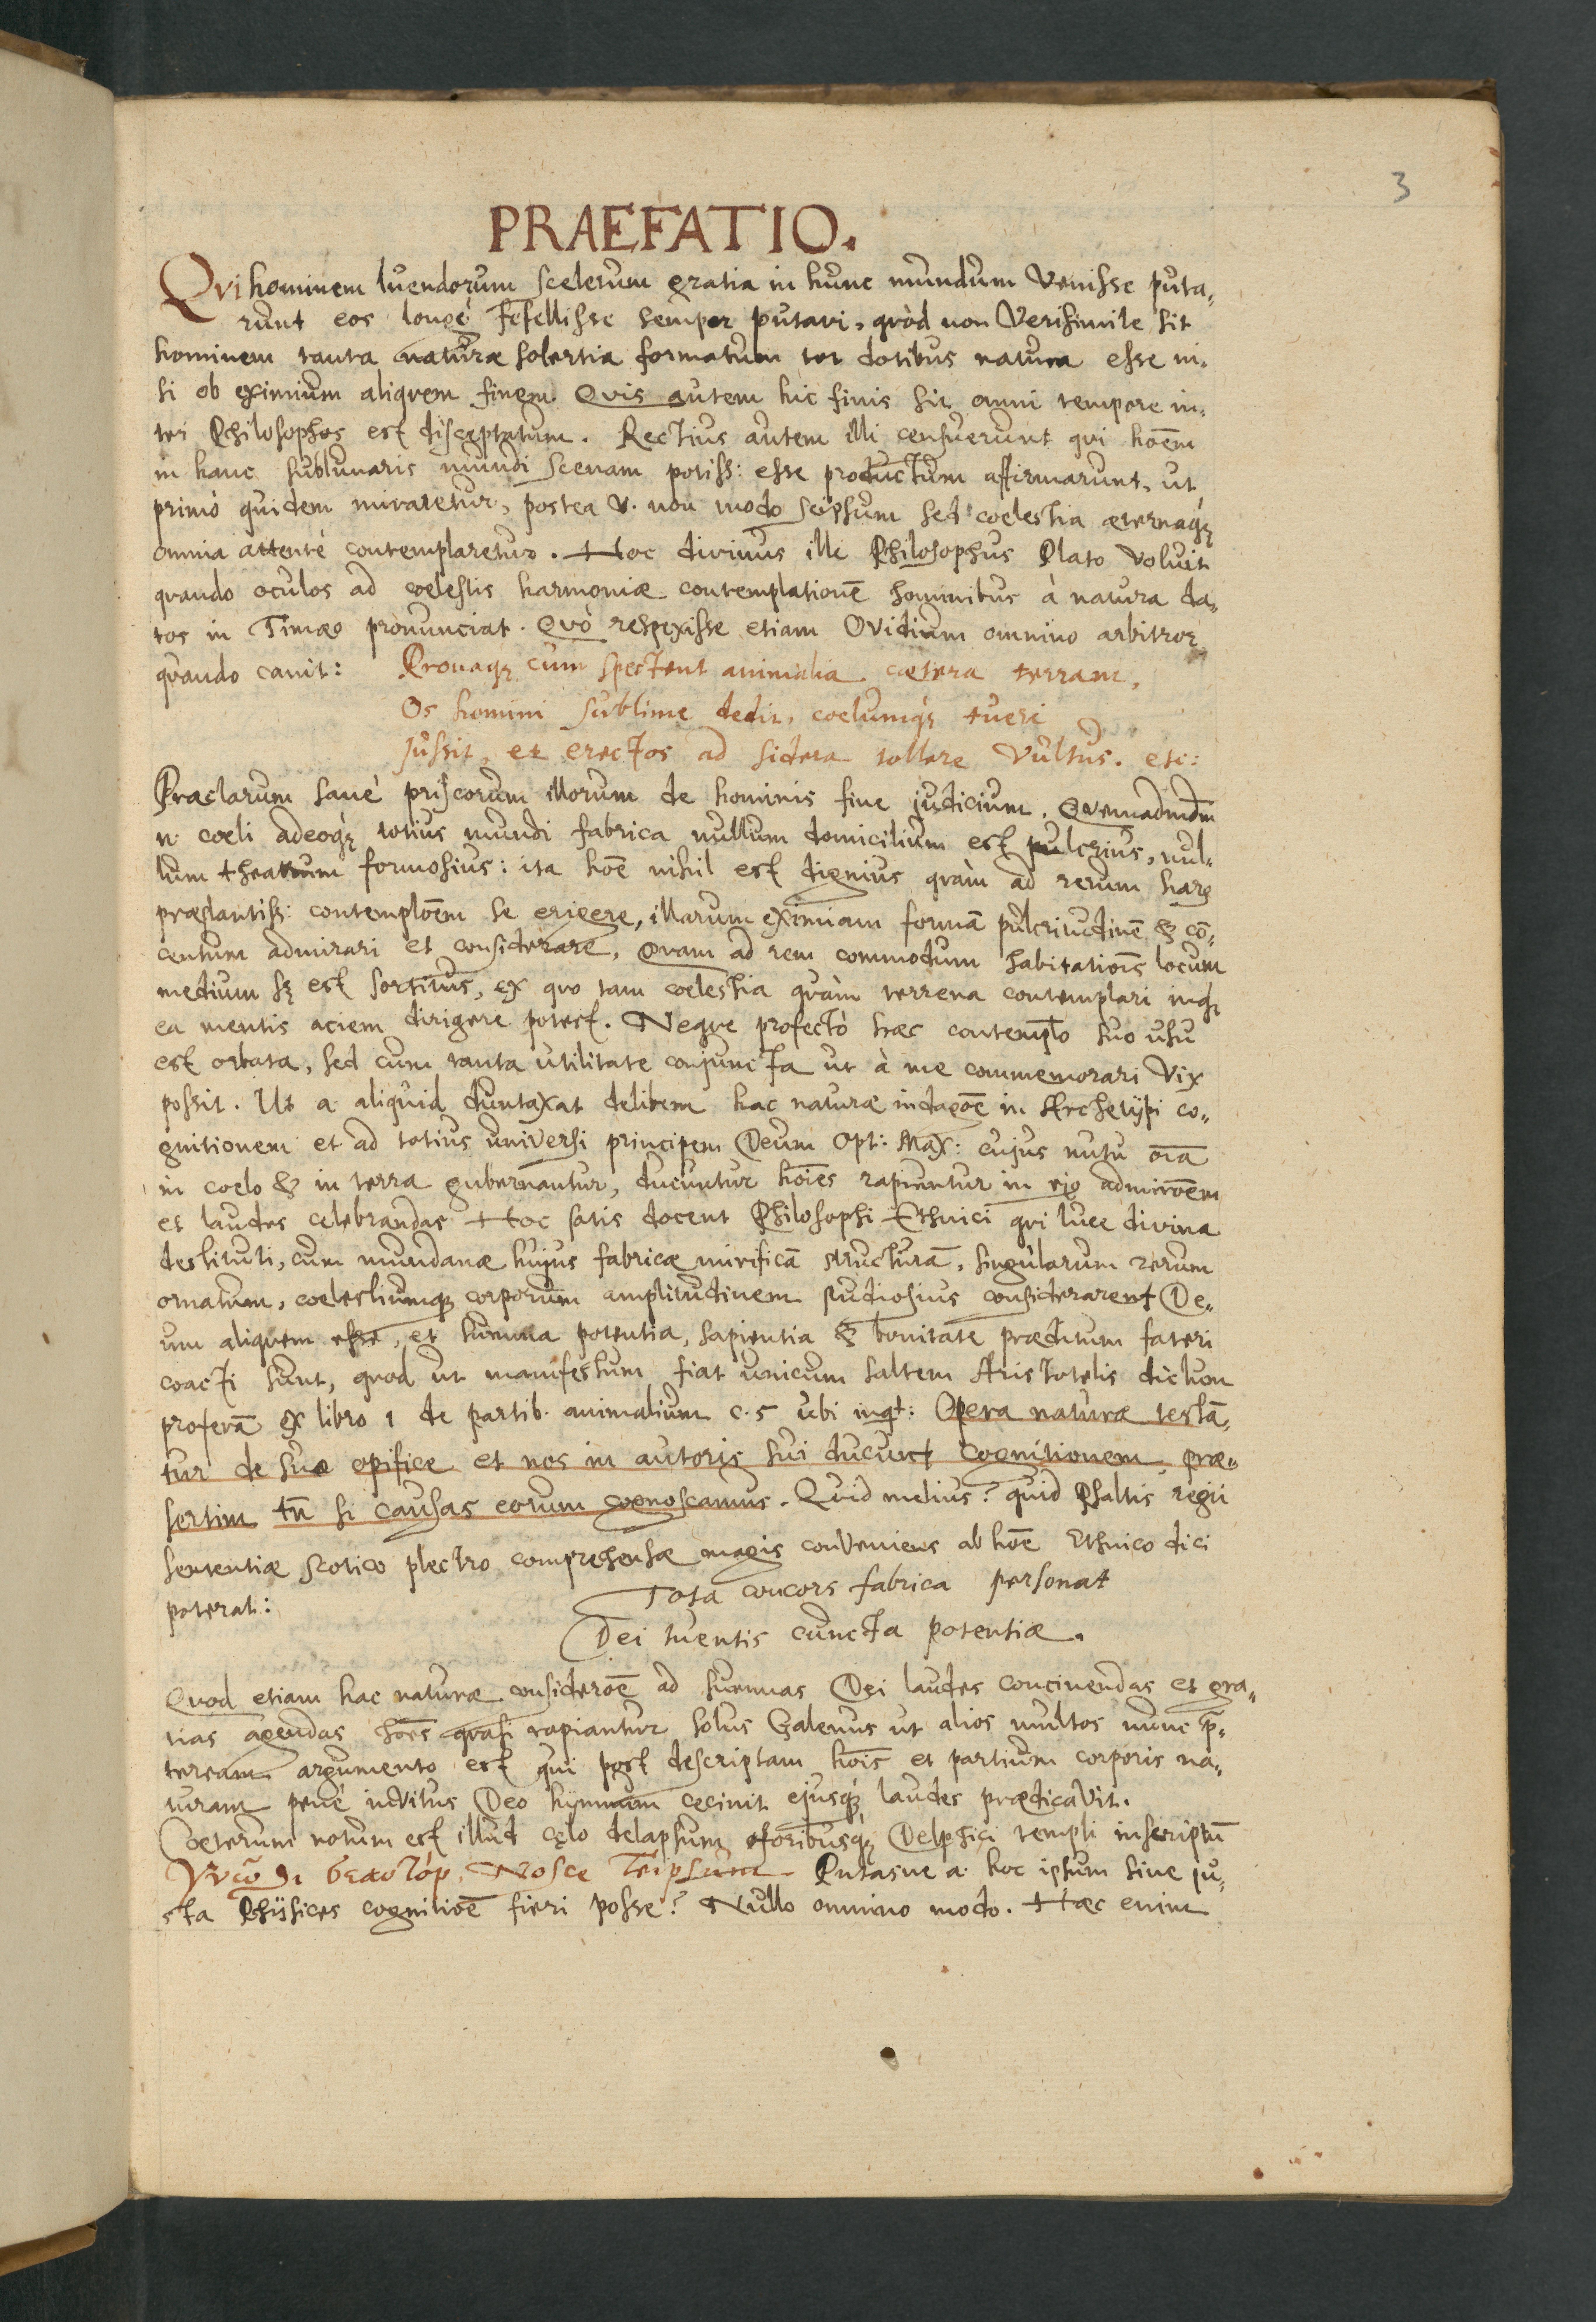 3
PRAEFATIO.
Qvi hominem luendorum scelerum gratia in hunc mundum venisse puta-
runt eos longè fefellisse semper putavi, qvòd non verisimile sit
hominem tanta naturæ solertia formatum tot dotibus natura esse ni-
si ob eximium aliqvem finem. Qvis autem hic finis sit omni tempore in-
ter Philosophos est disceptatum. Rectius autem illi censuerunt qvi hoēm
in hanc sublunaris mundi scenam potiss: esse productum affirmarunt, ut
primò quidem miraretur, postea v. non modo seipsum sed coelestia æternaq́ꝫ
omnia attentè contemplaretur. Hoc divinus ille Philosophus Plato voluit
qvando oculos ad coelestis harmoniæ contemplationē hominibus à natura da-
tos in Timæo pronunciat. Qvò respexisse etiam Ovidium omnino arbitror
qvando canit: Pronaqꝫ cum spectent animalia cætera terram,
Os homini sublime dedit, coelumq́ꝫ tueri
Jussit, et erectos ad sidera tollere vultus. etc:
Præclarum sanè priscorum illorum de hominis fine judicium. Qvemadmdm̄
n. coeli adeoq́ꝫ totius mundi fabrica nullum domicilium est pulcrius, nul-
lum theatrum formosius: ita hoē nihil est dignius qvàm ad rerum harꝫ
præstantiss: contemploēm se erigere, illarum eximiam formā pulcritudinē & cō-
centum admirari et considerare. Qvam ad rem commodum habitatiois̄ locum
medium sꝫ est sortitus, ex qvo tam coelestia qvàm terrena contemplari inqꝫ
ea mentis aciem dirigere potest. Neqve profectò hæc contemplo suo usu
est orbata, sed cum tanta utilitate conjuncta ut à me commemorari vix
possit. Ut a. aliquid duntaxat delibem hac naturæ indagoē in Archetypi co-
gnitionem et ad totius universi principem Deum Opt: Max: cujus nutu oīa
in coelo & in terra gubernantur, ducuntur hoīes rapiuntur in ejꝯ admiroēm
et laudes celebrandas Hoc satis docent Philosophi Ethnici qvi luce divina
destituti, cum mundanæ hujus fabricæ mirificā structurā, singularum rerum
ornatum, coelestiumqꝫ corporum amplitudinem studiosius considerarent De-
um aliqvem esse, et summa potentia, sapientia & bonitate præditum fateri
coacti sunt, qvod ut manifestum fiat unicum saltem Aristotelis dictum
proferā ex libro 1 de partib. animalium c. 5 ubi inqt: Opera naturæ testā-
tur de suo opifice et nos in autoris sui ducunt cognitionem præ-
sertim tn̄ si causas eorum cognoscamus. Quid melius? quid Psaltis regii
sententiæ scotico plectro comprehensæ magis conveniens ab hoē Ethnico dici
poterat: Tota concors fabrica personat
Dei tuentis cuncta potentiæ.
Qvod etiam hac naturæ consideroē ad summas Dei laudes concinendas et gra-
tias agendas hoēs qvasi rapiantur solus Galenus ut alios multos nunc p̄-
teream argumento est qui post descriptam hoīs et partium corporis na-
turam penè invitus Deo hymnum cecinit ejusq́ꝫ laudes prædicavit.
Cæterum notum est illud cęlo delapsum foribusq́ꝫ Delphici templi inscriptū
Γνῶθι σεαυτόν, Nosce Teipsum Putasne a. hoc ipsum sine ju-
sta Physices cognitioē fieri posse? Nullo omnino modo. Hæc enim